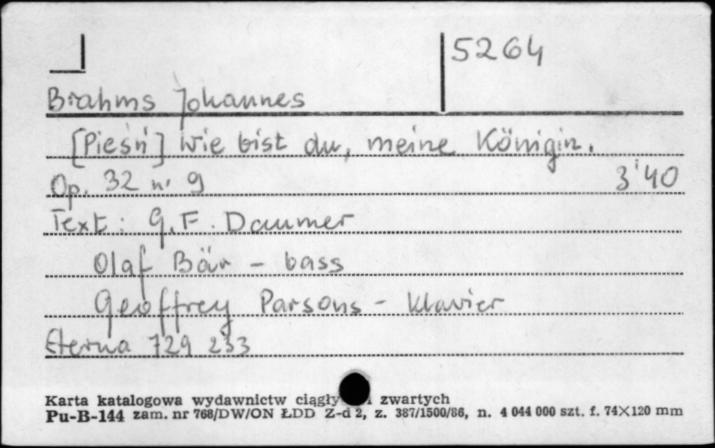 5264
Brahms Johannes
[Pieśń] Wie bist du, meine Königin.
Op. 32 nr 9 3'40
Text: G.F. Daumer
Olaf Bär - bass
Geoffrey Parsons - Klavier
Eterna 729 233
Karta katalogowa wydawnictw ciągły i zwartych
Pu-B-144 zam. nr 768/DW/ON ŁDD Z-d 2, z. 387/1500/86, n. 4 044 000 szt. f. 74×120 mm